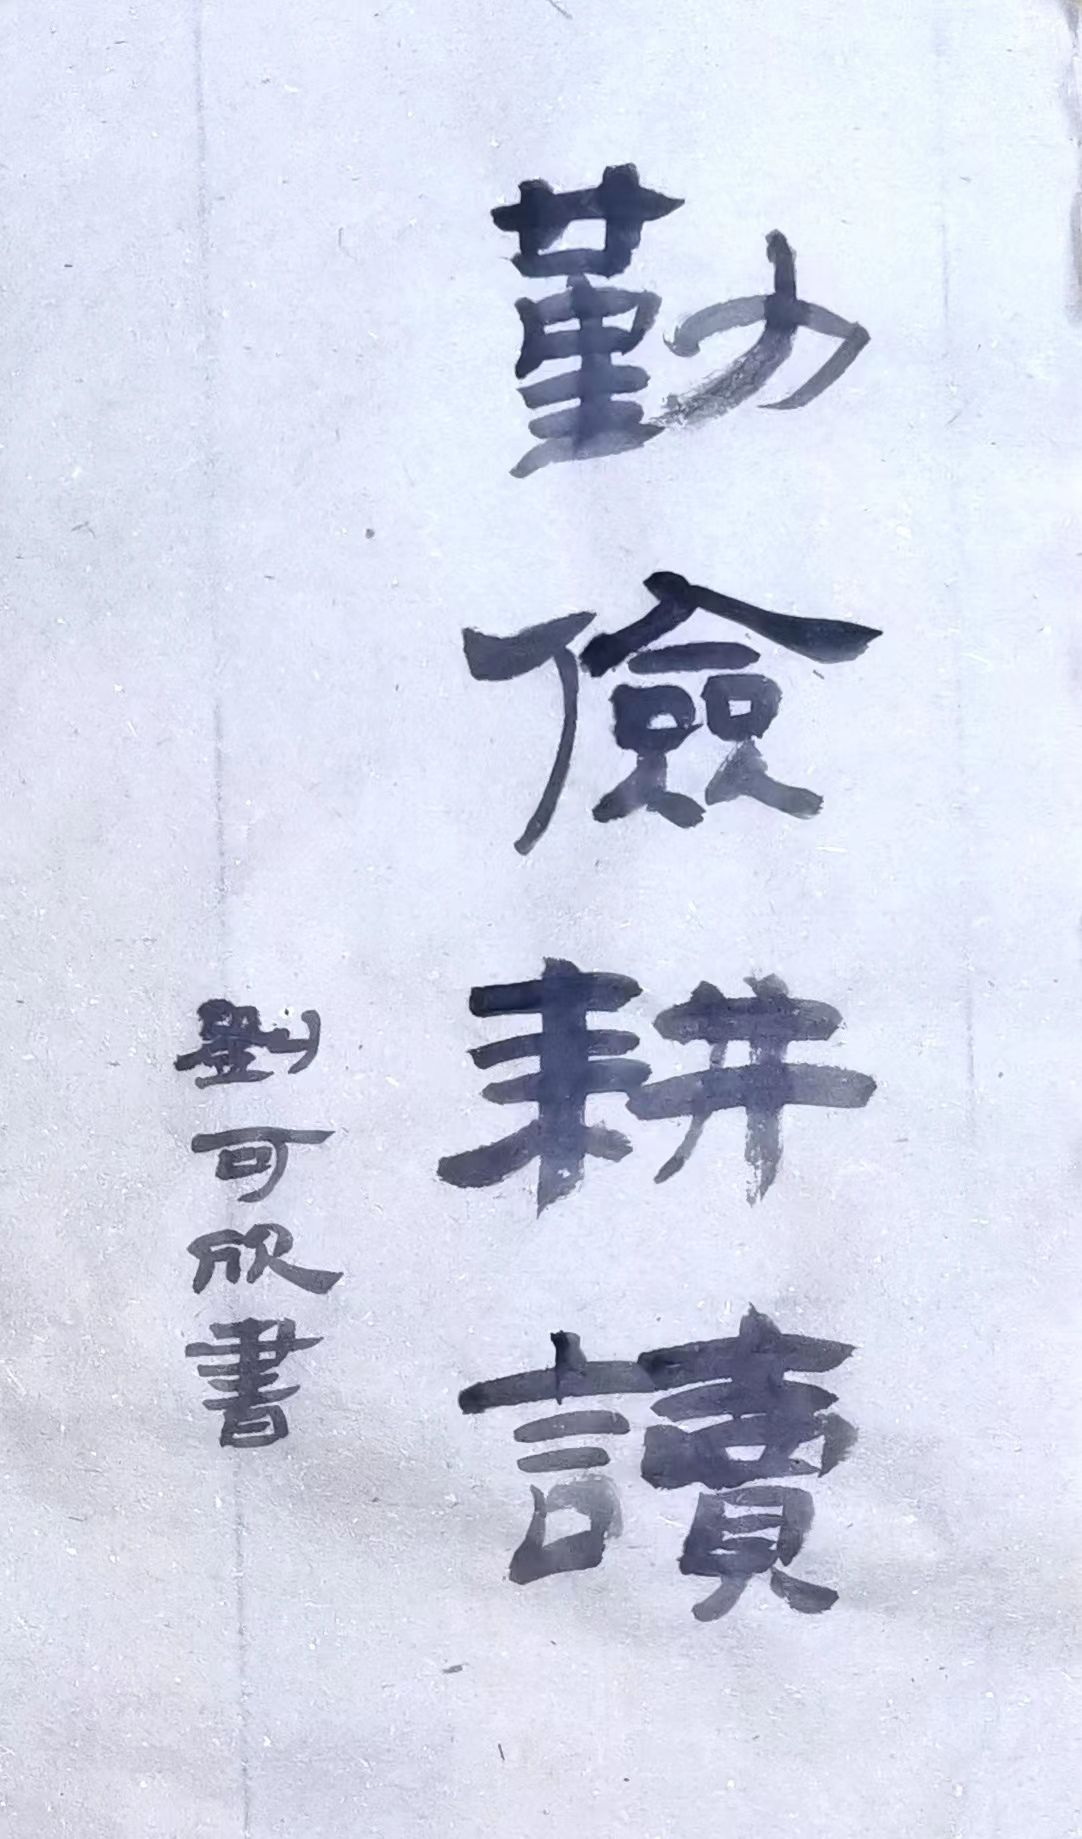 勤儉耕讀
劉可欣書